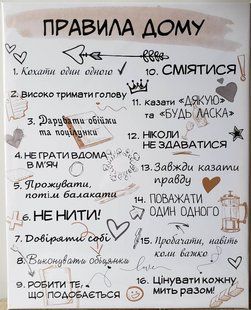 ПРАВИЛА ДОМУ
1. Кохати один одного
2. Високо тримати голову
3. Дарувати обійми
та поцілунки
4. НЕ ГРАТИ ВДОМА
В М'ЯЧ
5. Прожувати,
потім балакати
6. НЕ НИТИ!
7. Довіряти собі
8. Виконувати обіцянки
9. РОБИТИ ТЕ,
ЩО ПОДОБАЄТЬСЯ
10. СМІЯТИСЯ
11. КАЗАТИ «ДЯКУЮ»
ТА «БУДЬ ЛАСКА»
12. НІКОЛИ
НЕ ЗДАВАТИСЯ
13. Завжди казати
правду
14. ПОВАЖАТИ
ОДИН ОДНОГО
15. Пробачати, навіть
коли важко
love
16. Цінувати кожну
мить разом!